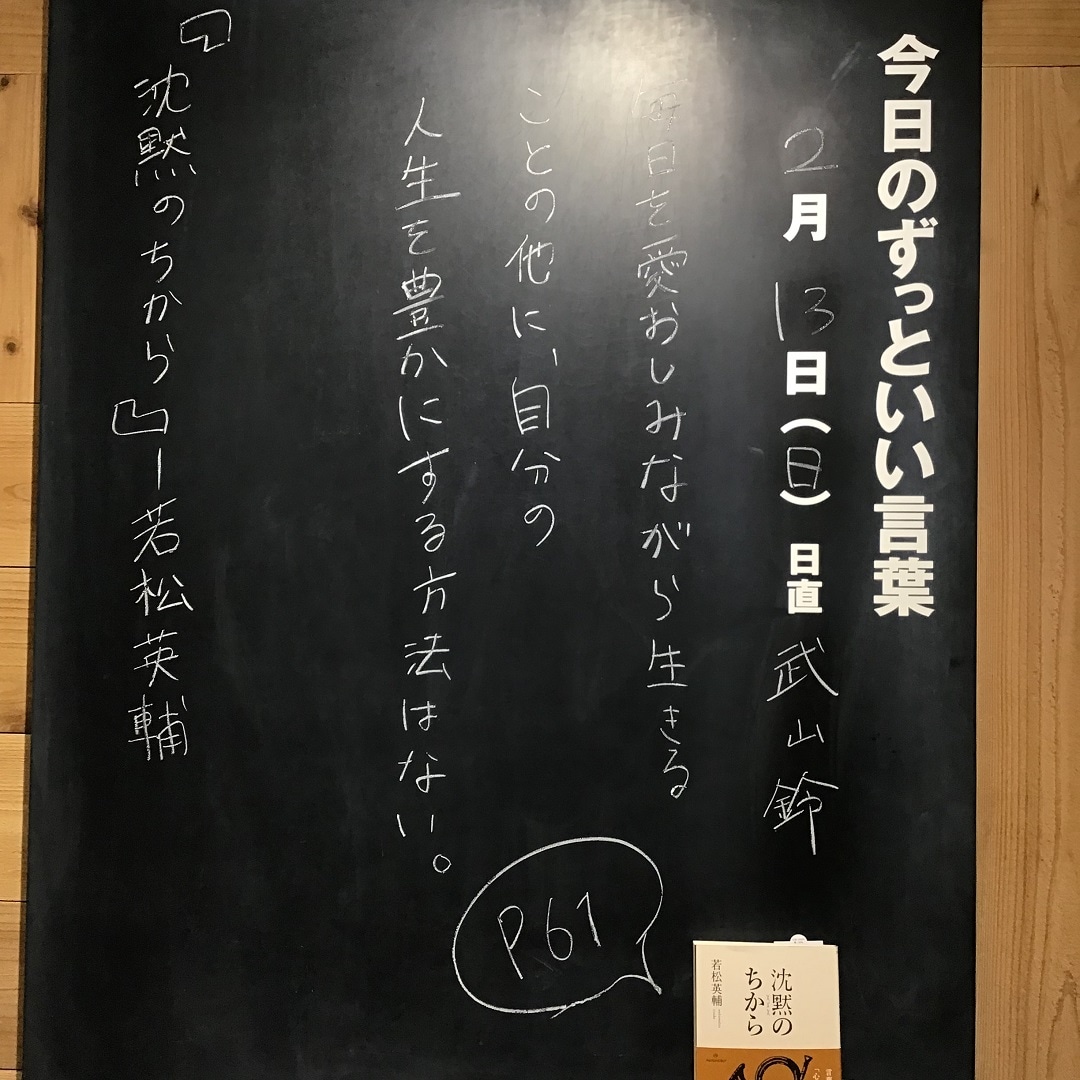 今日のずっといい言葉
2月13日(日) 日直 武山鈴
毎日を愛おしみながら生きる
ことの他に、自分の
人生を豊かにする方法はない。
P61
『沈黙のちから』ー若松英輔
沈黙の
ちから
若松英輔